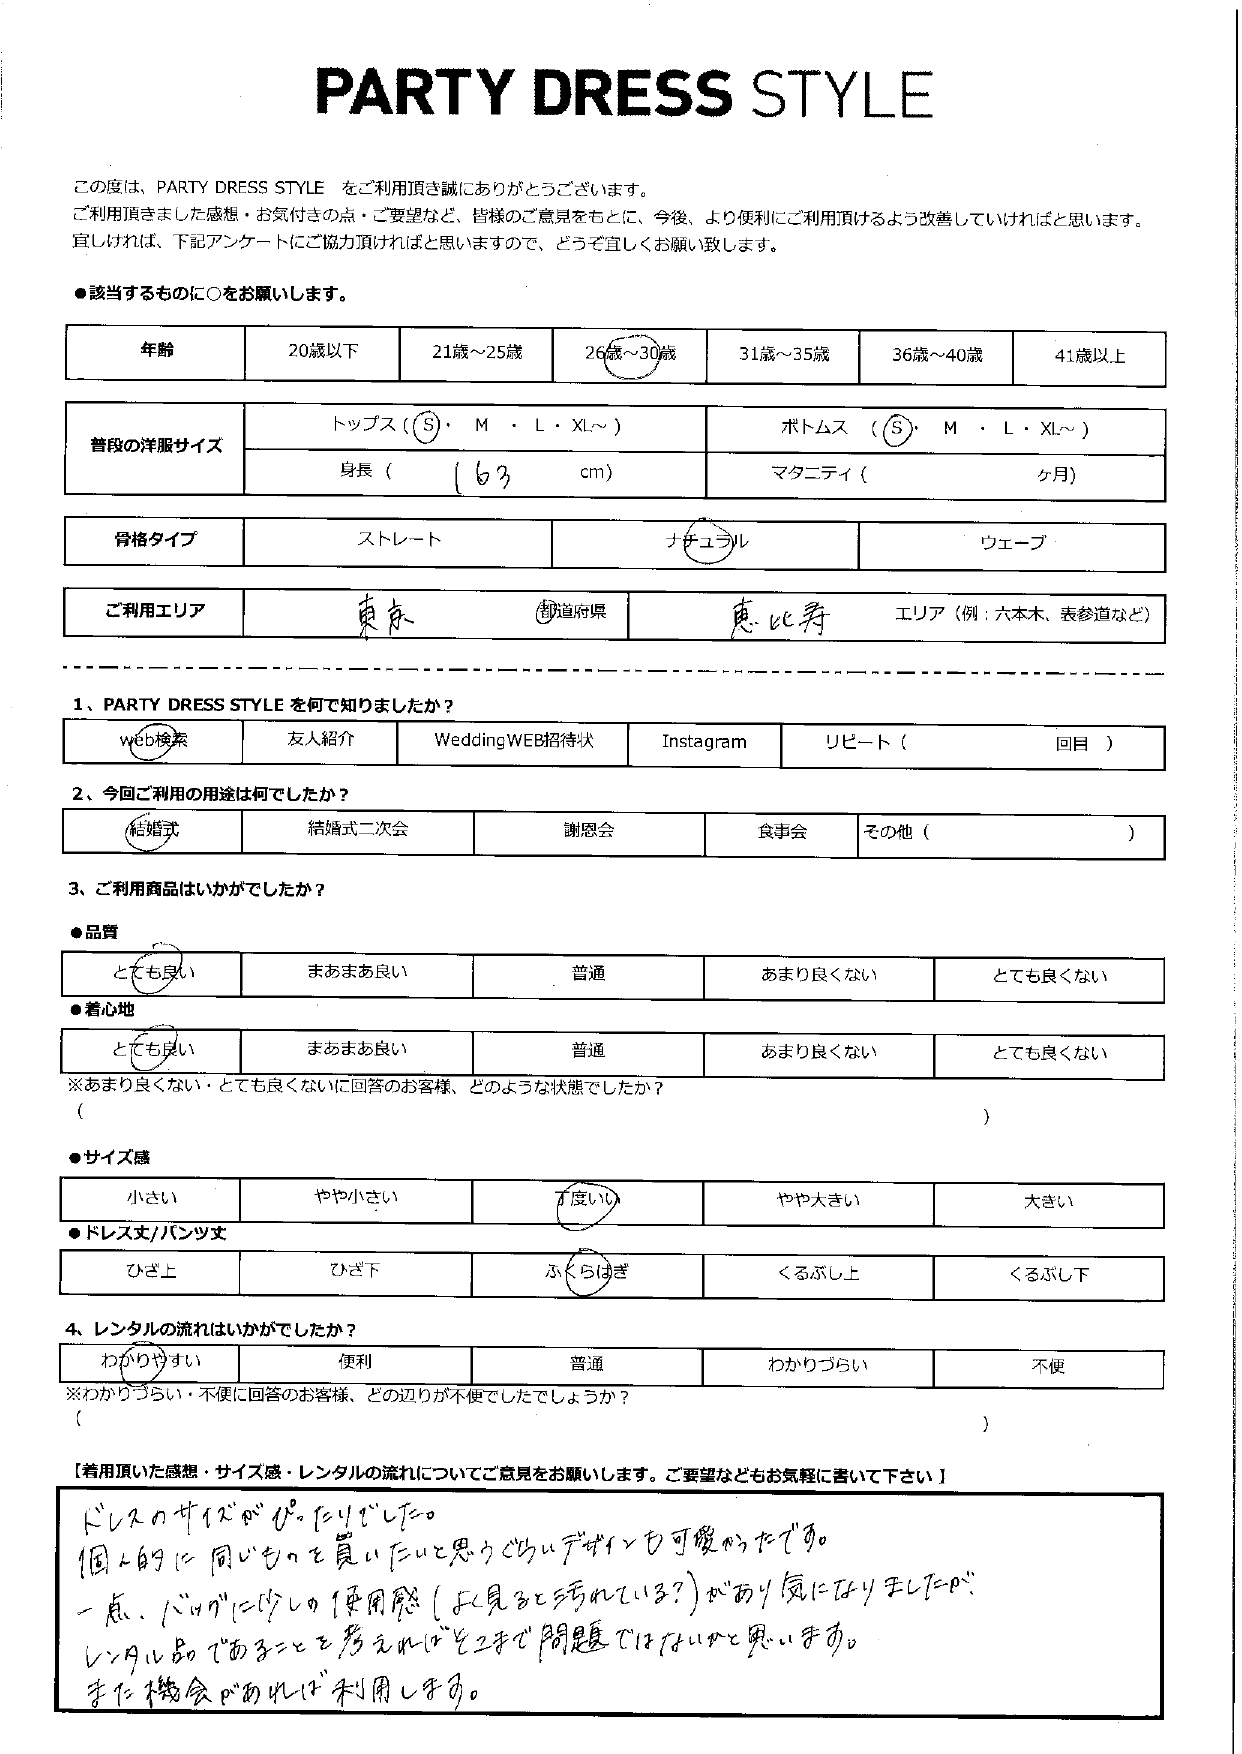 PARTY DRESS STYLE
この度は、PARTY DRESS STYLE をご利用頂き誠にありがとうございます。
ご利用頂きました感想・お気付きの点・ご要望など、皆様のご意見をもとに、今後、より便利にご利用頂けるよう改善していければと思います。
宜しければ、下記アンケートにご協力頂ければと思いますので、どうぞ宜しくお願い致します。
●該当するものに○をお願いします。
年齢 20歳以下 21歳～25歳 26歳～30歳 31歳～35歳 36歳～40歳 41歳以上
普段の洋服サイズ
トップス (S・ M ・ L・ XL～ ) ボトムス (S・ M ・ L・ XL～ )
身長 ( 163 cm) マタニティ ( ケ月)
骨格タイプ ストレート ナチュラル ウェーブ
ご利用エリア 東京 都道府県 恵比寿 エリア (例：六本木、表参道など)
1、PARTY DRESS STYLE を何で知りましたか？
web検索 友人紹介 WeddingWEB招待状 Instagram リピート ( 回目 )
2、今回ご利用の用途は何でしたか？
結婚式 結婚式二次会 謝恩会 食事会 その他 ( )
3、ご利用商品はいかがでしたか？
●品質
とても良い まあまあ良い 普通 あまり良くない とても良くない
●着心地
とても良い まあまあ良い 普通 あまり良くない とても良くない
※あまり良くない・とても良くないに回答のお客様、どのような状態でしたか？
( )
●サイズ感
小さい やや小さい 丁度いい やや大きい 大きい
●ドレス丈/パンツ丈
ひざ上 ひざ下 ふくらはぎ くるぶし上 くるぶし下
4、レンタルの流れはいかがでしたか？
わかりやすい 便利 普通 わかりづらい 不便
※わかりづらい・不便に回答のお客様、どの辺りが不便でしたでしょうか？
( )
【着用頂いた感想・サイズ感・レンタルの流れについてご意見をお願いします。ご要望などもお気軽に書いて下さい】
ドレスのサイズがぴったりでした。
個人的に同じものを買いたいと思うぐらいデザインも可愛かったです。
一点、バッグに少しの使用感(よく見ると汚れている?)があり気になりましたが、
レンタル品であることを考えればそこまで問題ではないかと思います。
また機会があれば利用します。